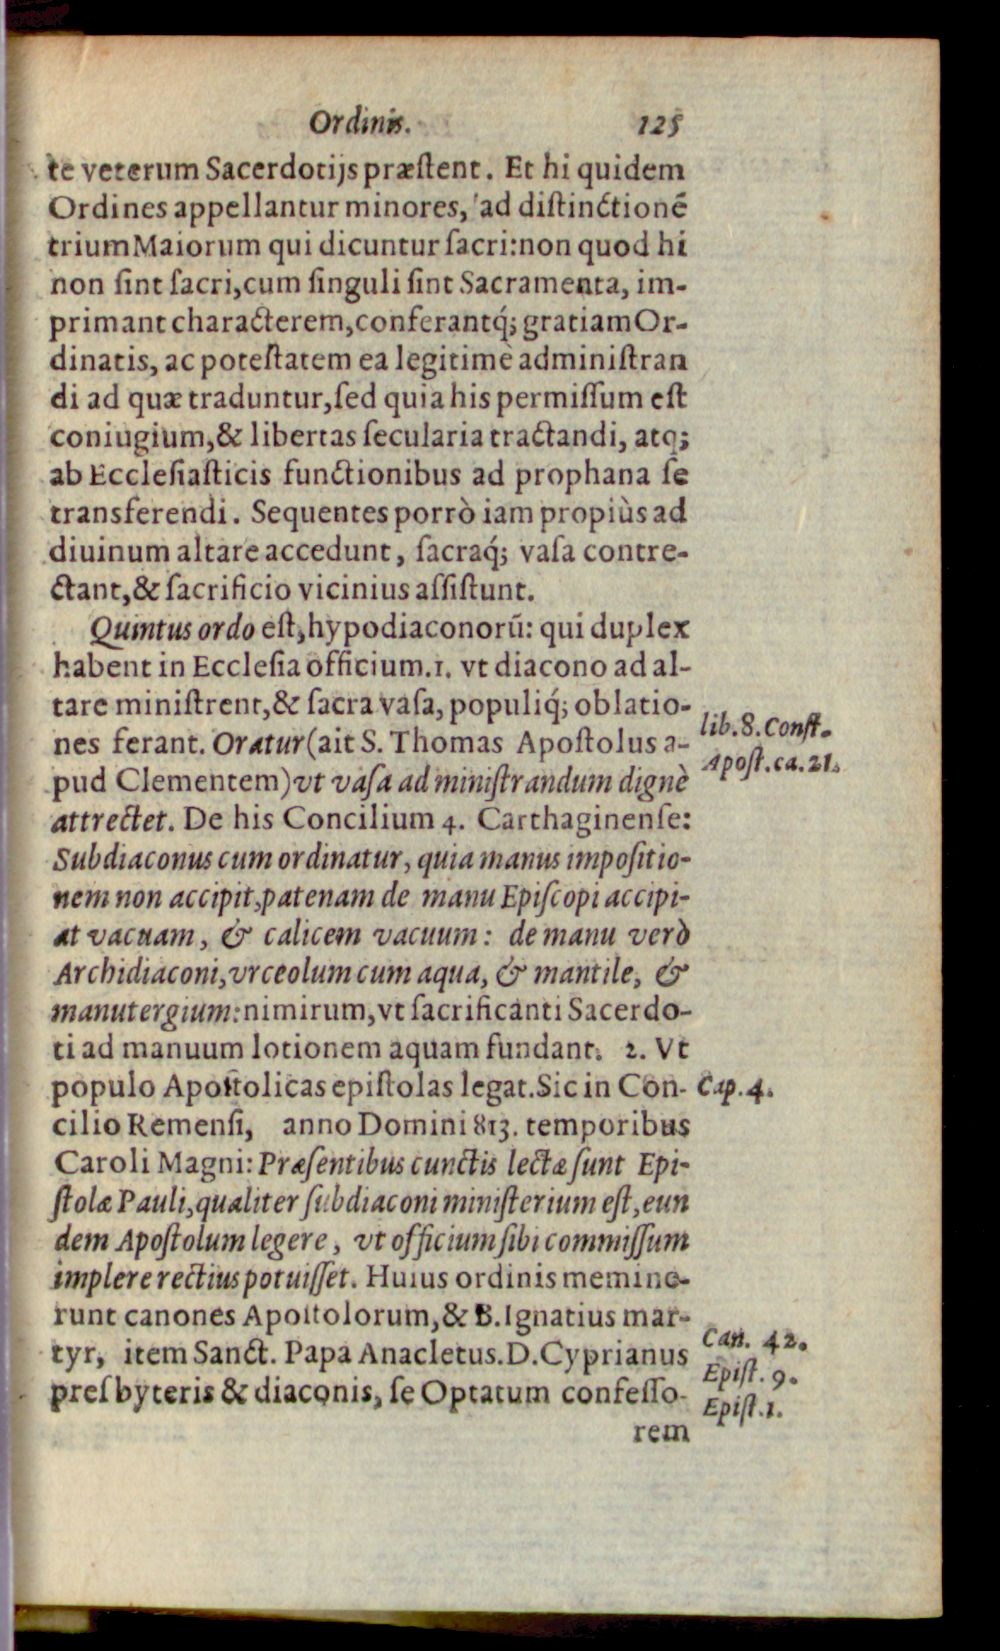 Ordinis. 125
te veterum Sacerdotijs præſtent. Et hi quidem
Ordines appellantur minores, ad diſtinctionẽ
trium Maiorum qui dicuntur ſacri: non quod hi
non ſint ſacri, cum ſinguli ſint Sacramenta, im-
primant characterem, conferantq́; gratiam Or-
dinatis, ac poteſtatem ea legitimè adminiſtran
di ad quæ traduntur, ſed quia his permiſſum eſt
coniugium, & libertas ſecularia tractandi, atq;
ab Eccleſiaſticis functionibus ad prophana ſe
transferendi. Sequentes porrò iam propiùs ad
diuinum altare accedunt, ſacraq́; vaſa contre-
ctant, & ſacrificio vicinius aſſiſtunt.
Quintus ordo eſt, hypodiaconorũ: qui duplex
habent in Eccleſia officium. 1. vt diacono ad al-
tare miniſtrent, & ſacra vaſa, populiq́; oblatio-
nes ferant. Oratur (ait S. Thomas Apoſtolus a-
lib. 8. Conſt.
Apoſt. ca. 21.
pud Clementem) vt vaſa ad miniſtrandum dignè
attrectet. De his Concilium 4. Carthaginenſe:
Subdiaconus cum ordinatur, quia manus impoſitio-
nem non accipit, patenam de manu Epiſcopi accipi-
at vacuam, & calicem vacuum: de manu verò
Archidiaconi, vrceolum cum aqua, & mantile, &
manutergium: nimirum, vt ſacrificanti Sacerdo-
ti ad manuum lotionem aquam fundant. 2. Vt
populo Apoſtolicas epiſtolas legat. Sic in Con-
Cap. 4.
cilio Remenſi, anno Domini 813. temporibus
Caroli Magni: Præſentibus cunctis lectæ ſunt Epi-
ſtolæ Pauli, qualiter ſubdiaconi miniſterium eſt, eun
dem Apoſtolum legere, vt officium ſibi commiſſum
implere rectius potuiſſet. Huius ordinis memine-
runt canones Apoſtolorum, & B. Ignatius mar-
Can. 42.
tyr, item Sanct. Papa Anacletus. D. Cyprianus
Epiſt. 9.
presbyteris & diaconis, ſe Optatum confeſſo-
Epiſt. 1.
rem